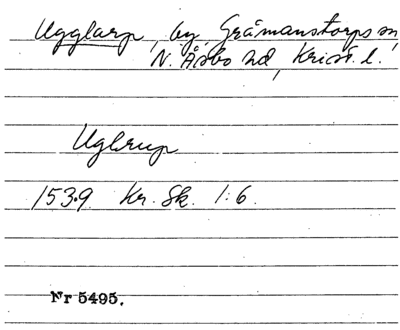 Ugglarp, by, Gråmanstorps sn,
N. Åsbo hd, Krist. l.
Uglrup
1539 Kr. Sk. 1:6.
Nr 5495.